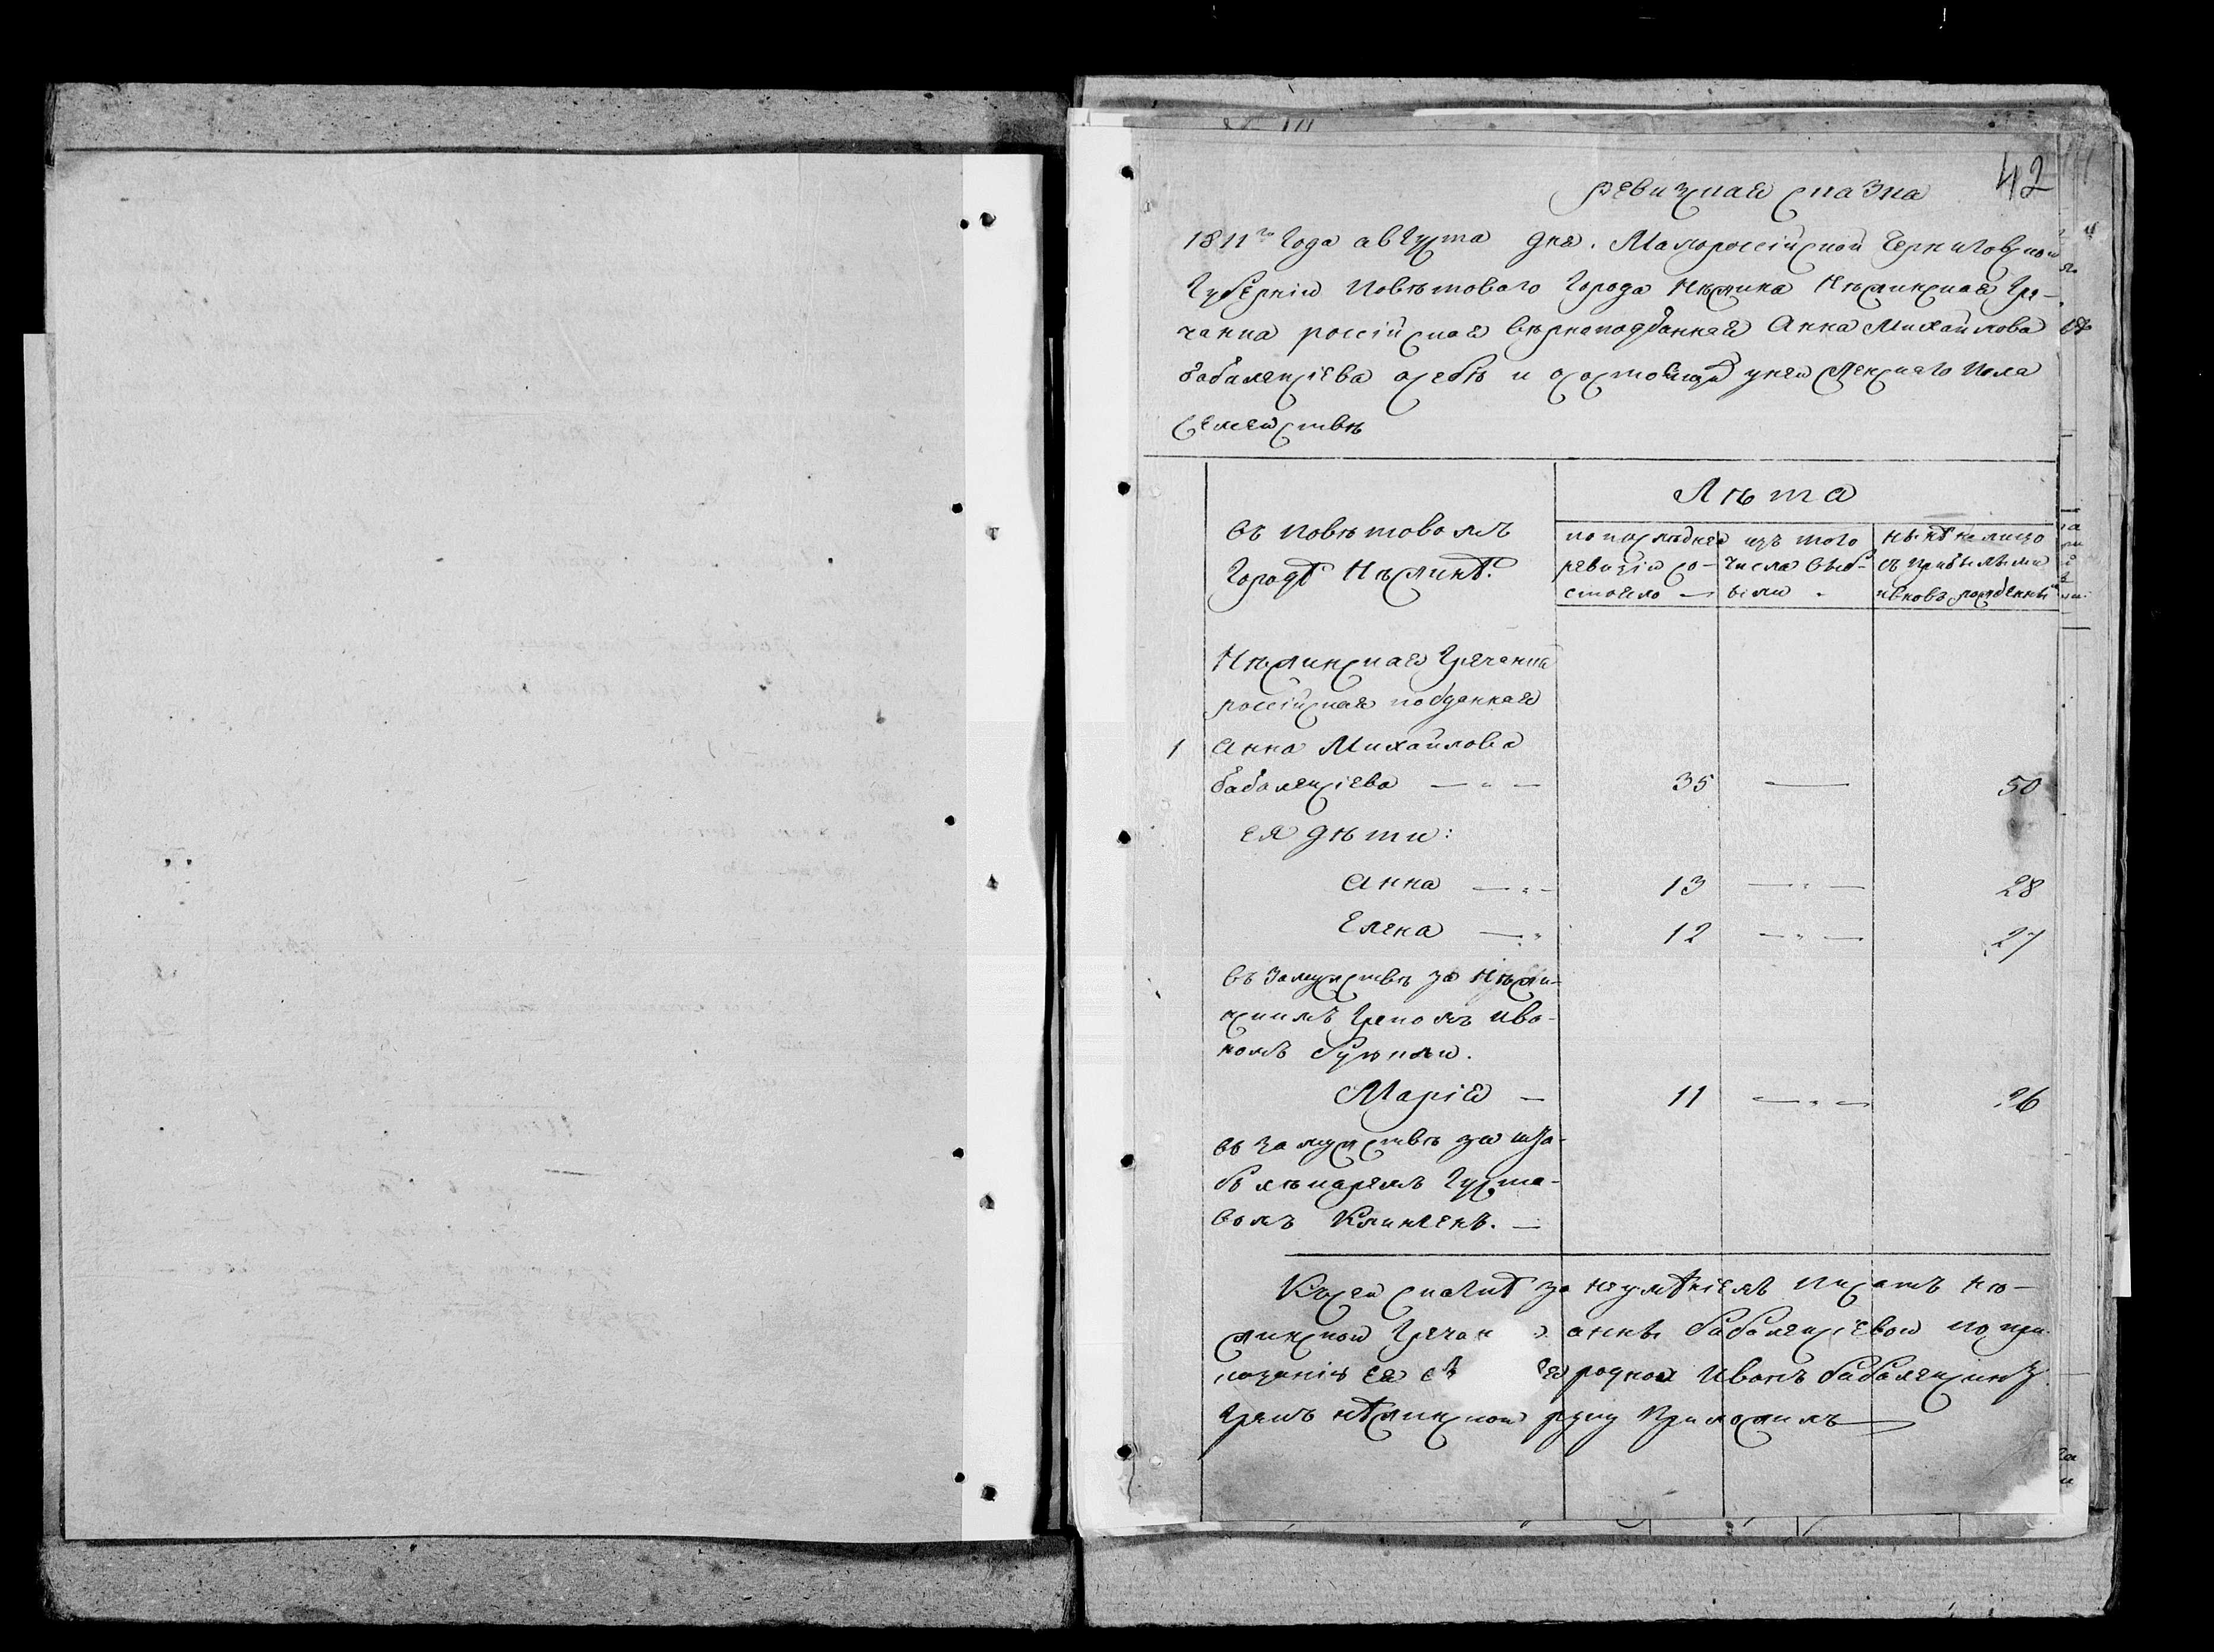 42
ревизская сказка
1811го Года августа дня. Малороссійской Черниговской
Губерніи Повѣтоваго Города Нѣжина Нѣжинская Гре-
чанка россійская вѣрноподданная Анна Михайлова
бабаленсіева о себѣ и о состоящей у ней женскаго пола
семействѣ
въ повѣтовомъ
Городѣ Нѣжинѣ.
Лѣта
по последней
ревизіи со-
стояло —
изъ того
числа выб-
выли
нынѣ на лицо
съ прибылыми
и вновь рожденны
Нѣжинская Гречанка
россійская подданная
1 Анна Михайлова
бабаленсіева — 35 — 50
ея дѣти:
Анна — 13 — 28
Елена — 12 — 27
въ замужствѣ за Нѣжи-
нскимъ Грекомъ Ива-
номъ
Марія — 11 — 26
въ замужствѣ за шта-
бъ лѣкаремъ Густа-
вомъ —
К сей скаскѣ за неумѣніемъ писать нѣ-
жинской Гречан анны бабаленсіевой по при-
казанію ея с ея родной Иванъ бабаленскинъ
Грекъ нѣжинской руку Приложилъ